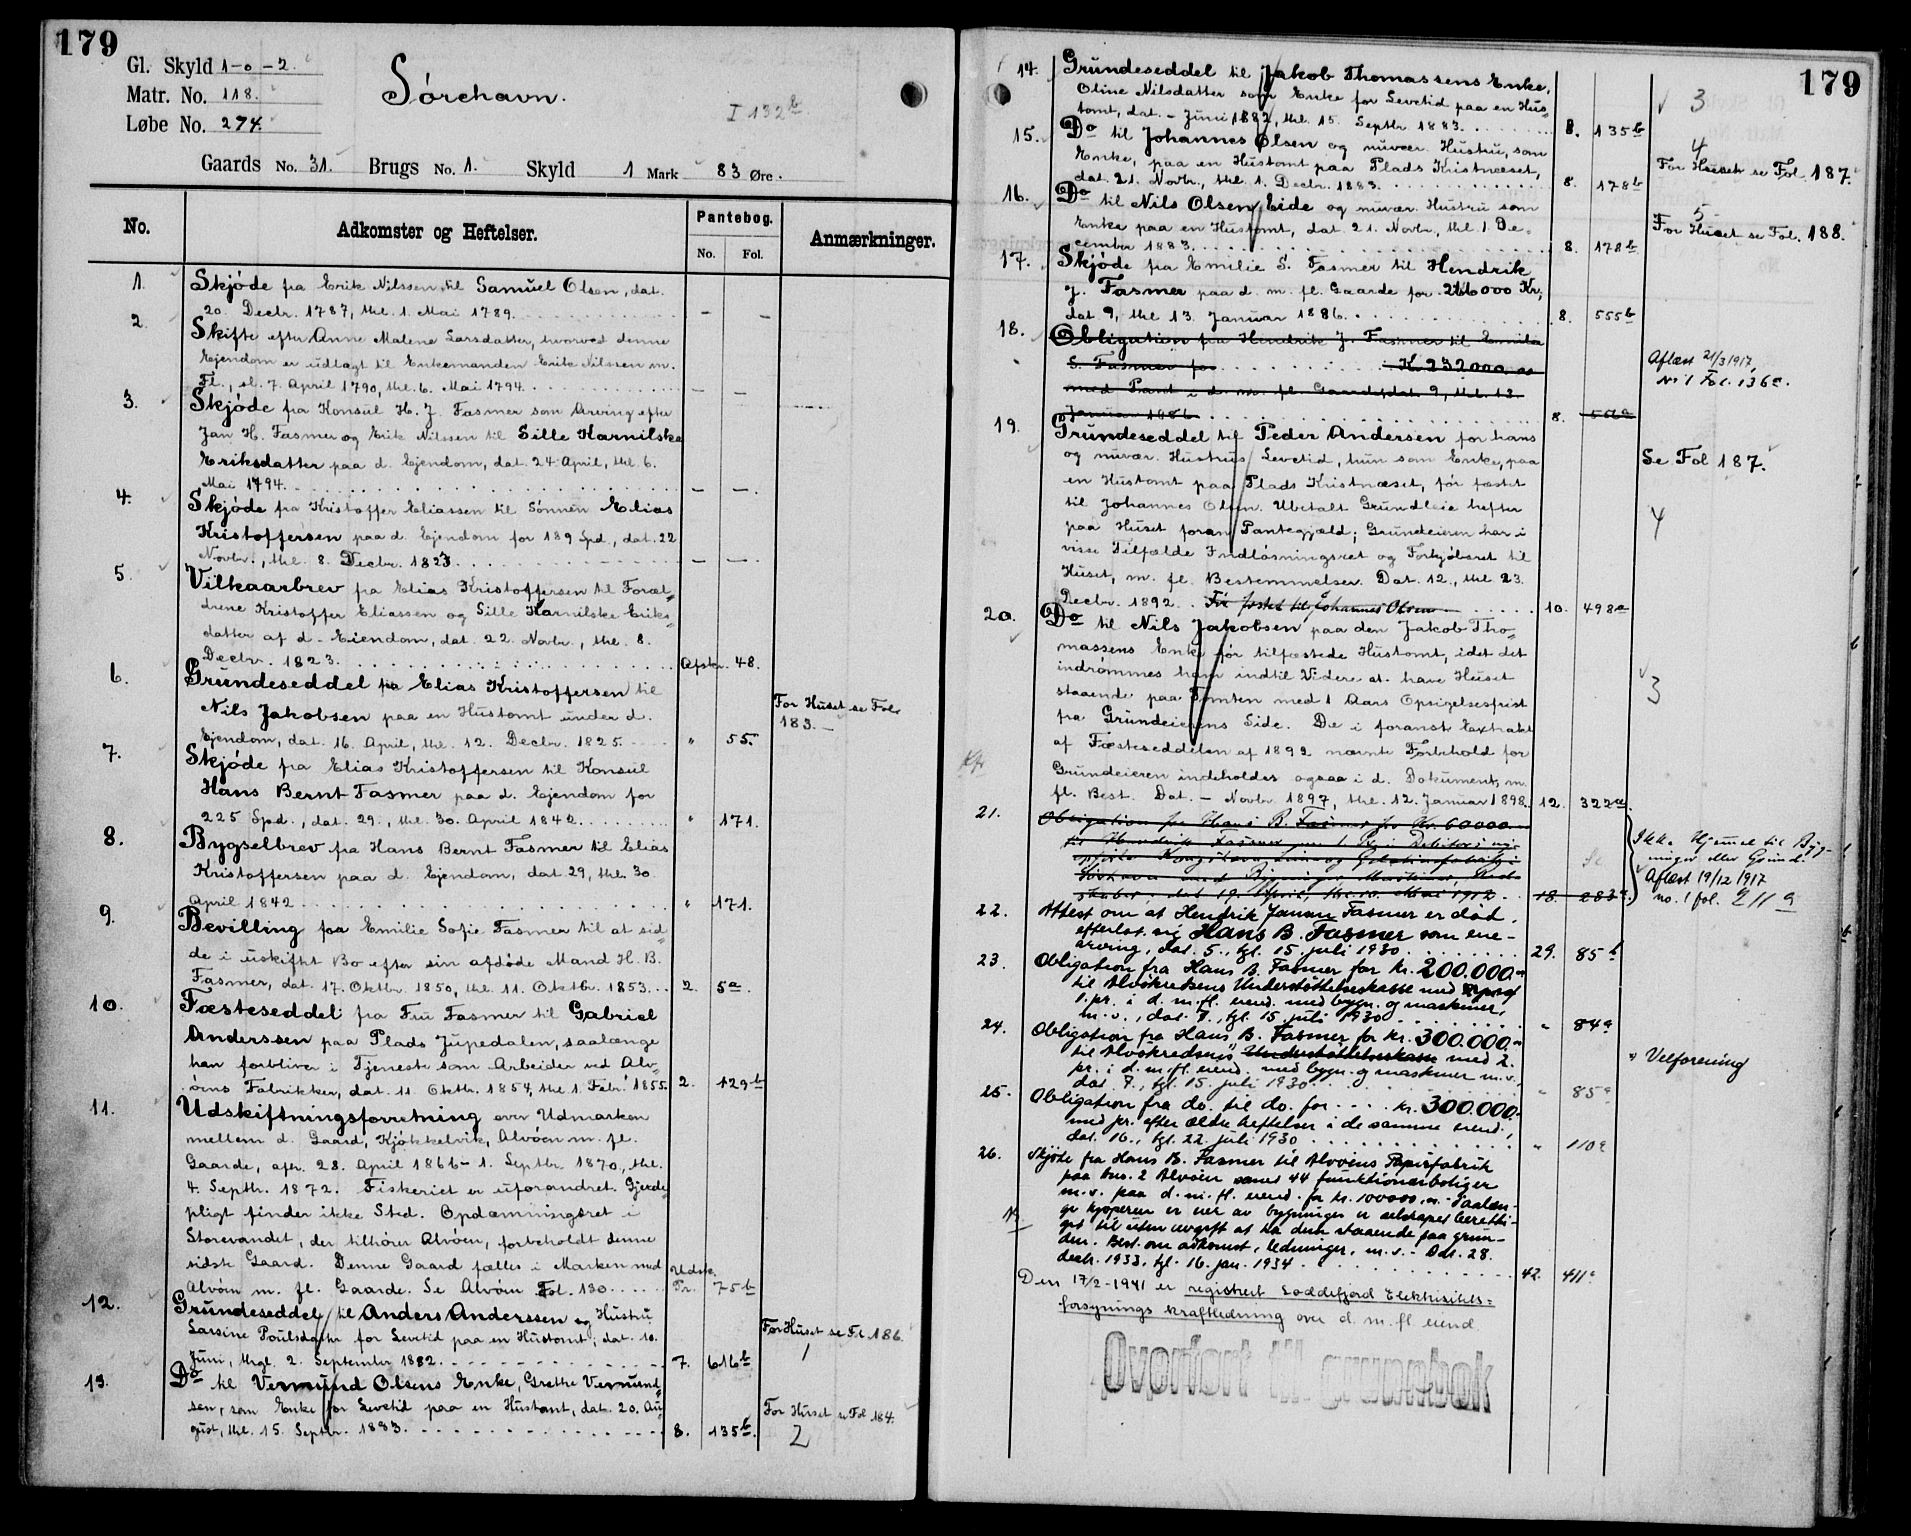 179
Gl. Skyld 1-0-2.
Matr. No. 118.
Løbe No. 274.
Sörehavn.
I 132b
Gaards No. 31. Brugs No. 1. Skyld 1 Mark 83 Øre.
No. Adkomster og Heftelser. Pantebog. No. Fol. Anmærkninger.
1. Skjöde fra Erik Nilssen til Samuel Olsen, dat.
20. Decbr. 1787, thl. 1. Mai 1789. — —
2. Skifte efter Anne Malene Larsdatter, hvorved denne
Ejendom er udlagt til Enkemanden Erik Nilssen m.
Fl., sl. 7. April 1790, thl. 6. Mai 1794. — —
3. Skjöde fra Konsul H. J. Fasmer som Arving efter
Jan H. Fasmer og Erik Nilssen til Sille Karnilske
Eriksdatter paa d. Ejendom, dat. 24 April, thl. 6.
Mai 1794. — —
4. Skjöde fra Kristoffer Eliassen til Sönnen Elias
Kristoffersen paa d. Ejendom for 189 Spd., dat. 22
Novbr., thl. 8. Decbr. 1823. — —
5. Vilkaarbrev fra Elias Kristoffersen til Foræl-
drene Kristoffer Eliassen og Sille Karnilske Eriks-
datter af d. Eiendom, dat. 22. Novbr., thl. 8.
Decbr. 1823. Afskr. 48.
6. Grundeseddel fra Elias Kristoffersen til
Nils Jakobsen paa en Hustomt under d.
Ejendom, dat. 16. April, thl. 12. Decbr. 1825. " 55.
For Huset se Fol.
183.
7. Skjöde fra Elias Kristoffersen til Konsul
Hans Bernt Fasmer paa d. Ejendom for
225 Spd., dat. 29., thl. 30. April 1842. " 171.
8. Bygselbrev fra Hans Bernt Fasmer til Elias
Kristoffersen paa d. Ejendom, dat. 29, thl. 30
April 1842 " 171.
9. Bevilling for Emilie Sofie Fasmer til at sid-
de i uskiftet Bo efter sin afdöde Mand H. B.
Fasmer, dat. 17. Oktbr. 1850, thl. 11. Oktbr. 1853. 2. 5a.
10. Fæsteseddel fra Fru Fasmer til Gabriel
Anderssen paa Plads Jupedalen, saalænge
han forbliver i Tjeneste som Arbeider ved Alv-
öens Fabrikker, dat. 11. Oktbr. 1854, thl. 1. Febr. 1855. 2. 129b
11. Udskiftningsforretning over Udmarken
mellem d. Gaard, Kjökkelvik, Alvöen m. fl.
Gaarde, afr. 28. April 1866 - 1. Septbr. 1870, thl.
4. Septbr. 1872. Fiskeriet er uforandret. Gjerde-
pligt finder ikke Sted. Opdæmningsret i
Storevandet, der tilhörer Alvöen, forbeholdt denne
sidste Gaard. Denne Gaard fælles i Marken med
Alvöen m. fl. Gaarde. Se Alvöen Fol. 130. Udsk. Pr. 75b
12. Grundeseddel til Anders Anderssen og Hustru
Larsine Poulsdatter for Levetid paa en Hustomt, dat. 10.
Juni, thgl. 2. September 1882. 7. 616b.
For Huset se Fol 186.
1
13. Do til Vermund Olsens Enke, Grethe Vermund-
sen, som Enke for Levetid paa en Hustomt, dat. 20. Au-
gust, thl. 15. Septbr. 1883. 8. 135b.
For Huset se Fol 184.
2
179
14. Grundeseddel til Jakob Thomassens Enke,
Oline Nilsdatter som Enke for Levetid paa en Hus-
tomt, dat. - Juni 1882, thl. 15. Septbr 1883. 8. 135b
3
15. Do til Johannes Olsen og nuvær. Hustru, som
Enke, paa en Hustomt paa Plads Kristnæset,
dat. 21. Novbr., thl. 1. Decbr. 1883. 8. 178b
4
For Huset se Fol. 187.
16. Do til Nils Olsen Eide og nuvær. Hustru som
Enke paa en Hustomt, dat 21. Novbr., thl. 1 De-
cember 1883. 8. 178b
5
For Huset se Fol. 188.
17. Skjöde fra Emilie S. Fasmer til Hendrik
J. Fasmer paa d. m. fl. Gaarde for 266000 Kr,
dat 9, thl 13. Januar 1886. 8. 555b
18. Obligation fra Hendrik J. Fasmer til Emilie
S. Fasmer for K 232000.00
med Pant i d. m. fl. Gaarde, dat. 9, thl. 13.
Januar 1886. 8. 556a
Aflæst 21/3 1917,
No 1 Fol. 136a.
19. Grundeseddel til Peder Andersen for hans
og nuvær. Hustrus Levetid, hun som Enke, paa
en Hustomt paa Plads Kristnæset, för fæstet
til Johannes Olsen. Ubetalt Grundleie hefter
paa Huset foran Pantegjæld; Grundeieren har i
visse Tilfælde Indlösningsret og Forkjöbsret til
Huset, m. fl. Bestemmelser. Dat. 12., thl. 23.
Decbr. 1892. För fæstet til Johannes Olsen 10. 498a
Se Fol 187.
4
20. Do til Nils Jakobsen paa den Jakob Tho-
massens Enke för tilfæstede Hustomt, idet det
indrömmes ham indtil Videre at have Huset
staaende paa Tomten med 1 Aars Opsigelsesfrist
fra Grundeierens Side. De i foranst. Extrakt
af Fæsteseddelen af 1892 nævnte Forbehold for
Grundeieren indeholdes ogsaa i d. Dokument, m.
fl. Best. Dat. - Novbr 1897, thl. 12. Januar 1898. 12. 322a.
3
21. Obligation fra Hans B. Fasmer for Kr. 60000
til Hendrik Fasmer
dat 19. April, thl. 10. Mai 1912. 18. 283a
Ikke Hjemmel til Byg-
ninger eller Grund.
Aflæst 19/12 1917
no. 1 fol. 211a
22. Attest om at Hendrik Jansen Fasmer er död,
efterlot sig Hans B. Fasmer som ene-
arving, dat. 5., tgl. 15. juli 1930. 29. 85b
23. Obligation fra Hans B. Fasmer for kr. 200.000.-
til Alvökredsens Understöttelseskasse med
1. pr. i d. m. fl. eiend. med bygn. og maskiner,
m. v., dat. 7., tgl. 15. juli 1930 " 84a
24. Obligation fra Hans B. Fasmer for kr. 300.000.-
til Alvökredsens Understöttelseskasse med 2.
pr. i d. m. fl. eiend. med bygn. og maskiner m. v.,
dat. 7., tgl. 15. juli 1930. " 85a
x) Velforening
25. Obligation fra do. til do. for kr. 300.000.-
med pr. efter ældre heftelser i de samme eiend.,
dat. 16., tgl. 22. juli 1930 " 110a
26. Skjöte fra Hans B. Fasmer til Alvöens Papirfabrik
paa bns. 2 Alvöen samt 44 funktionærboliger
m. v. paa d. m. fl. eiend. for kr. 100000.00. Saalæn-
ge kjöperen er eier av bygninger er selskapet beretti-
get til uten avgift at ha dem staaende paa grun-
den. Best. om adkomst, ledninger, m. v. - Dat. 28.
decbr. 1933, tgl. 16. jan. 1934. 42. 411a
Den 17/2-1941 er registrert Loddefjord Elektrisitets-
forsynings kraftledning over d. m. fl eiend.
Overført til grunnbok